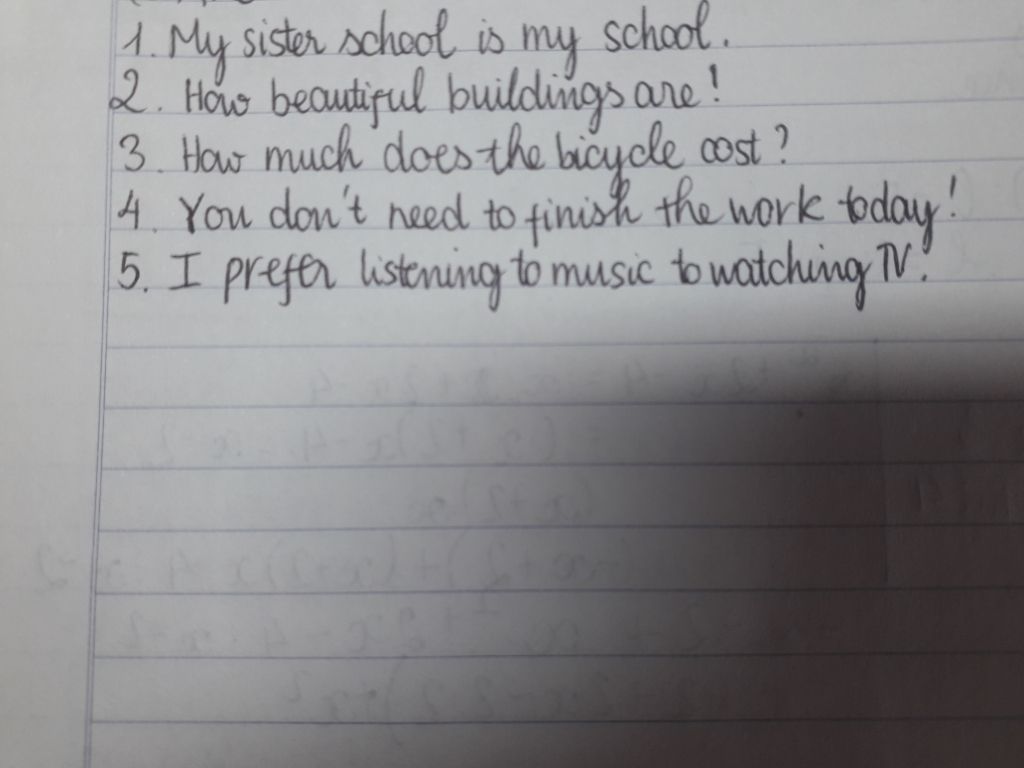 1. My sister school is my school.
2. How beautiful buildings are!
3. How much does the bicycle cost?
4. You don't need to finish the work today!
5. I prefer listening to music to watching TV.